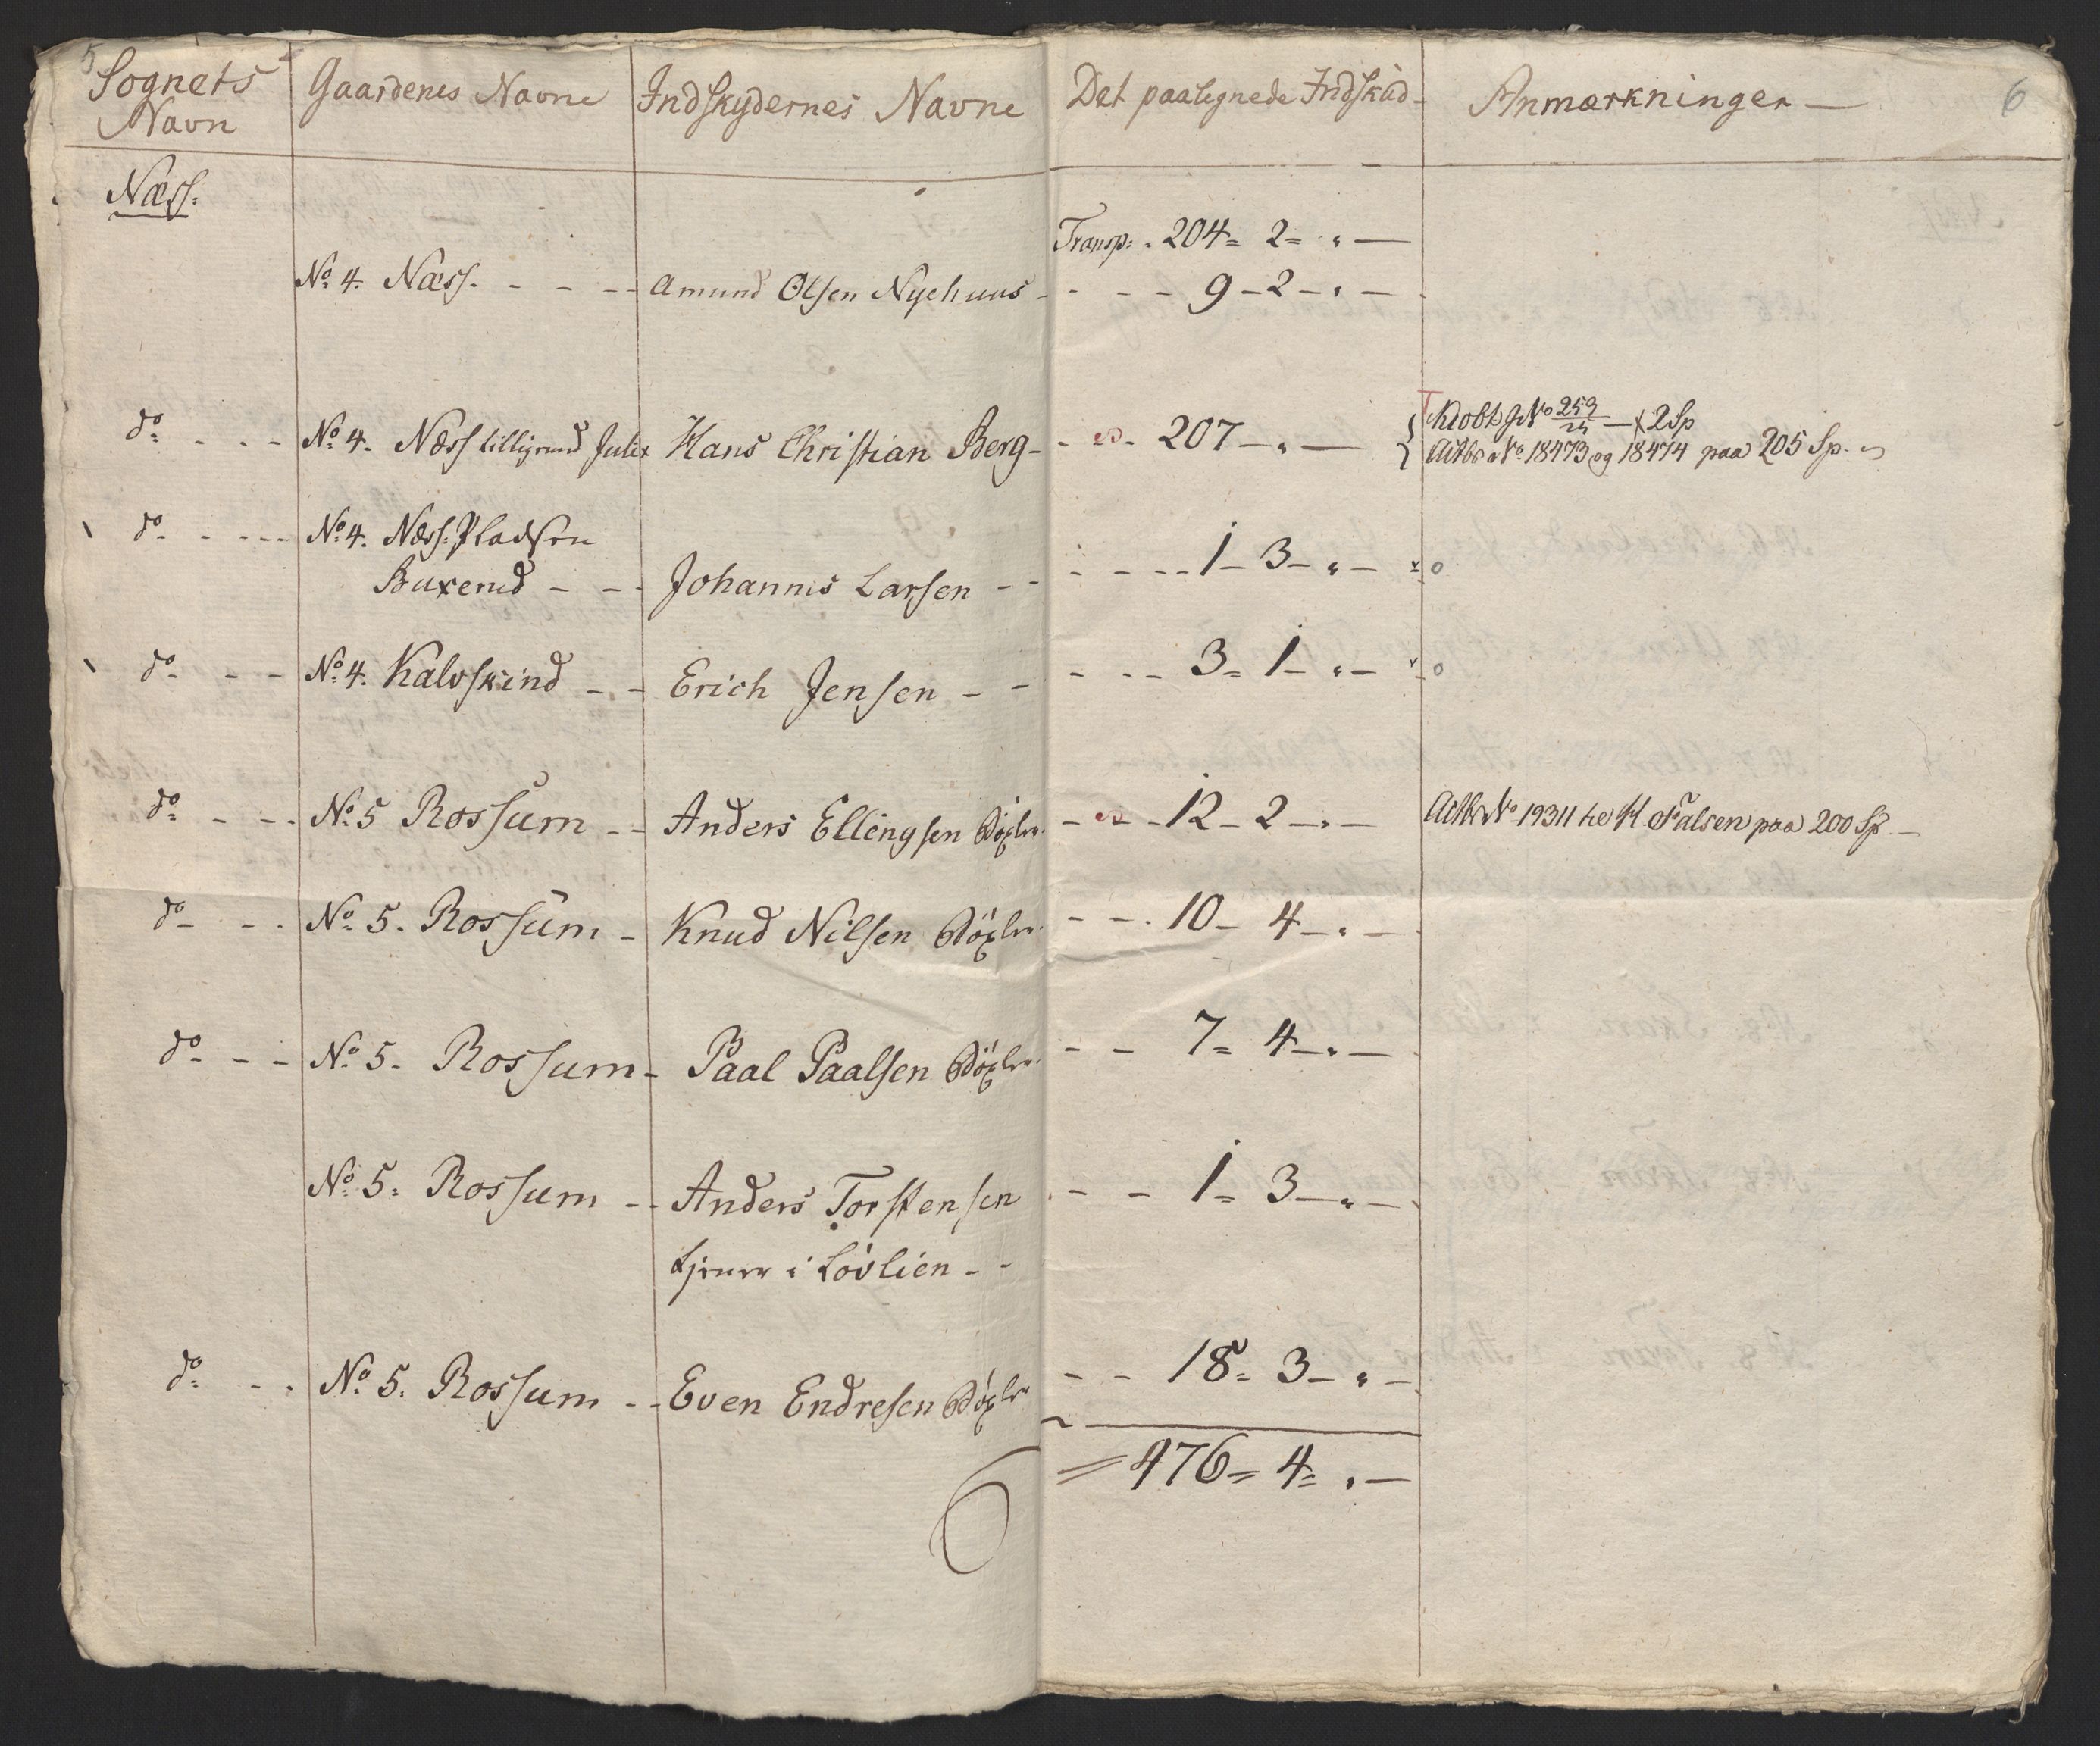 5
Sognets Navn
Gaardenes Navne
Indskydernes Navne
Det paalignede Indskud
Anmærkninger —
6
Næss.
Transp: . 204 = 2 = " —
No 4. Næss. - - - Amund Olsen Nyehuus - - - - 9 - 2 - " -
do - - - No 4. Næss Hans Christian Berg - - 207 - " —
No 253 — 2 Sp
No 18473 og 18474 paa 205 Sp.
do - - - - No 4. Næss. Pladsen
Buxerud - - - Johannis Larsen - - - - - - 1 - 3 - " - o
do - - - No 4. Kalvskind - - Erich Jensen - - - - - - 3 = 1 - " - o
do - - - No 5 Rossum - - Anders Ellingsen - - 12 - 2 - " -
No 19311 H. Falsen paa 200 Sp. —
do - - - No 5. Rossum - Knud Nilsen - - - 10 - 4 - " -
do - - - No 5. Rossum - Paal Paalsen - - 7 = 4 - " -
No 5. Rossum - - Anders Torstensen - - 1 = 3 - " -
tjener i Lövlien - -
do - - - No 5. Rossum - - Even Endresen - - 18 = 3 - " -
= 476 = 4 = " —
6